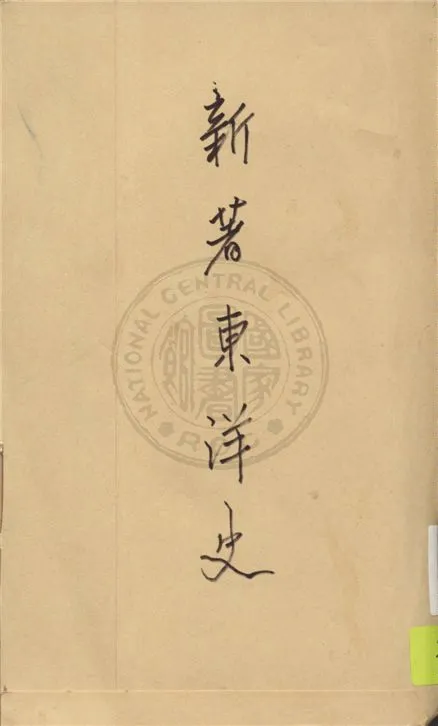 新著東洋史
NATIONAL CENTRAL LIBRARY
R.O.C
國家圖書館